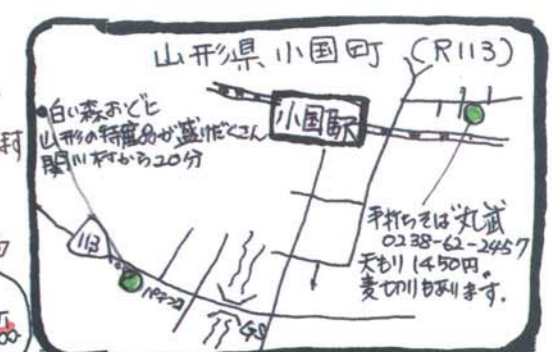 山形県小国町 (R113)
●白い森おぐに
山形の特産品が盛りだくさん
関川村から20分
小国駅
村
113
パチンコ
GS
手打ちそば 丸武
0238-62-2457
天もり 1450円。
麦切りもあります。